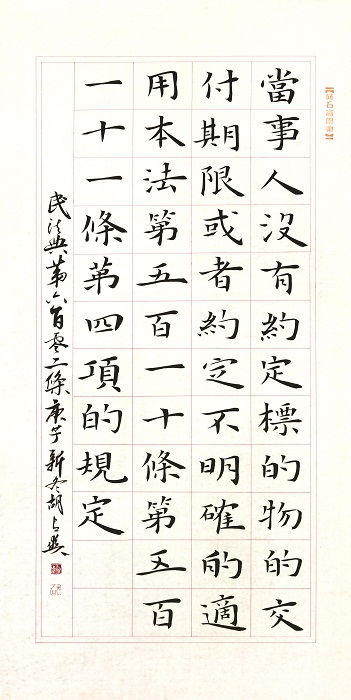 當事人沒有約定標的物的交
付期限或者約定不明確的適
用本法第五百一十條第五百
一十一條第四項的規定
民法典第六百零二條庚子新冬胡